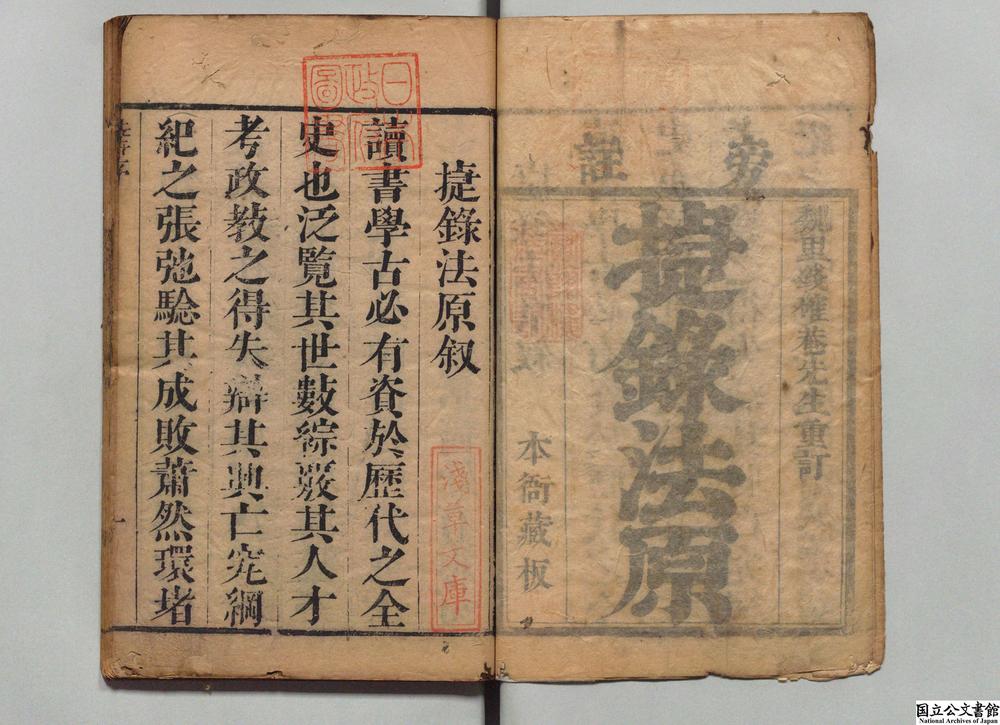 旁註
魏里錢惟菴先生重訂
捷錄法原
本衙藏板
捷錄法原叙
讀書學古必有資於歷代之全
史也泛覽其世數綜覈其人才
考政教之得失辯其興亡究綱
紀之張弛驗其成敗蕭然環堵
日本政府圖書
淺草文庫
一
国立公文書館
National Archives of Japan